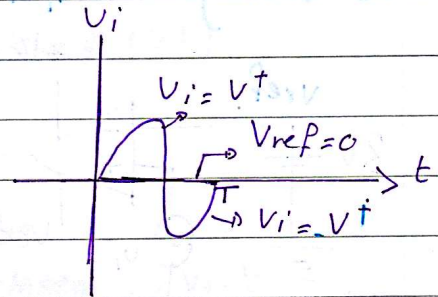 Ui
Ui = V†
Vref=0
t
T
Vi = -V†